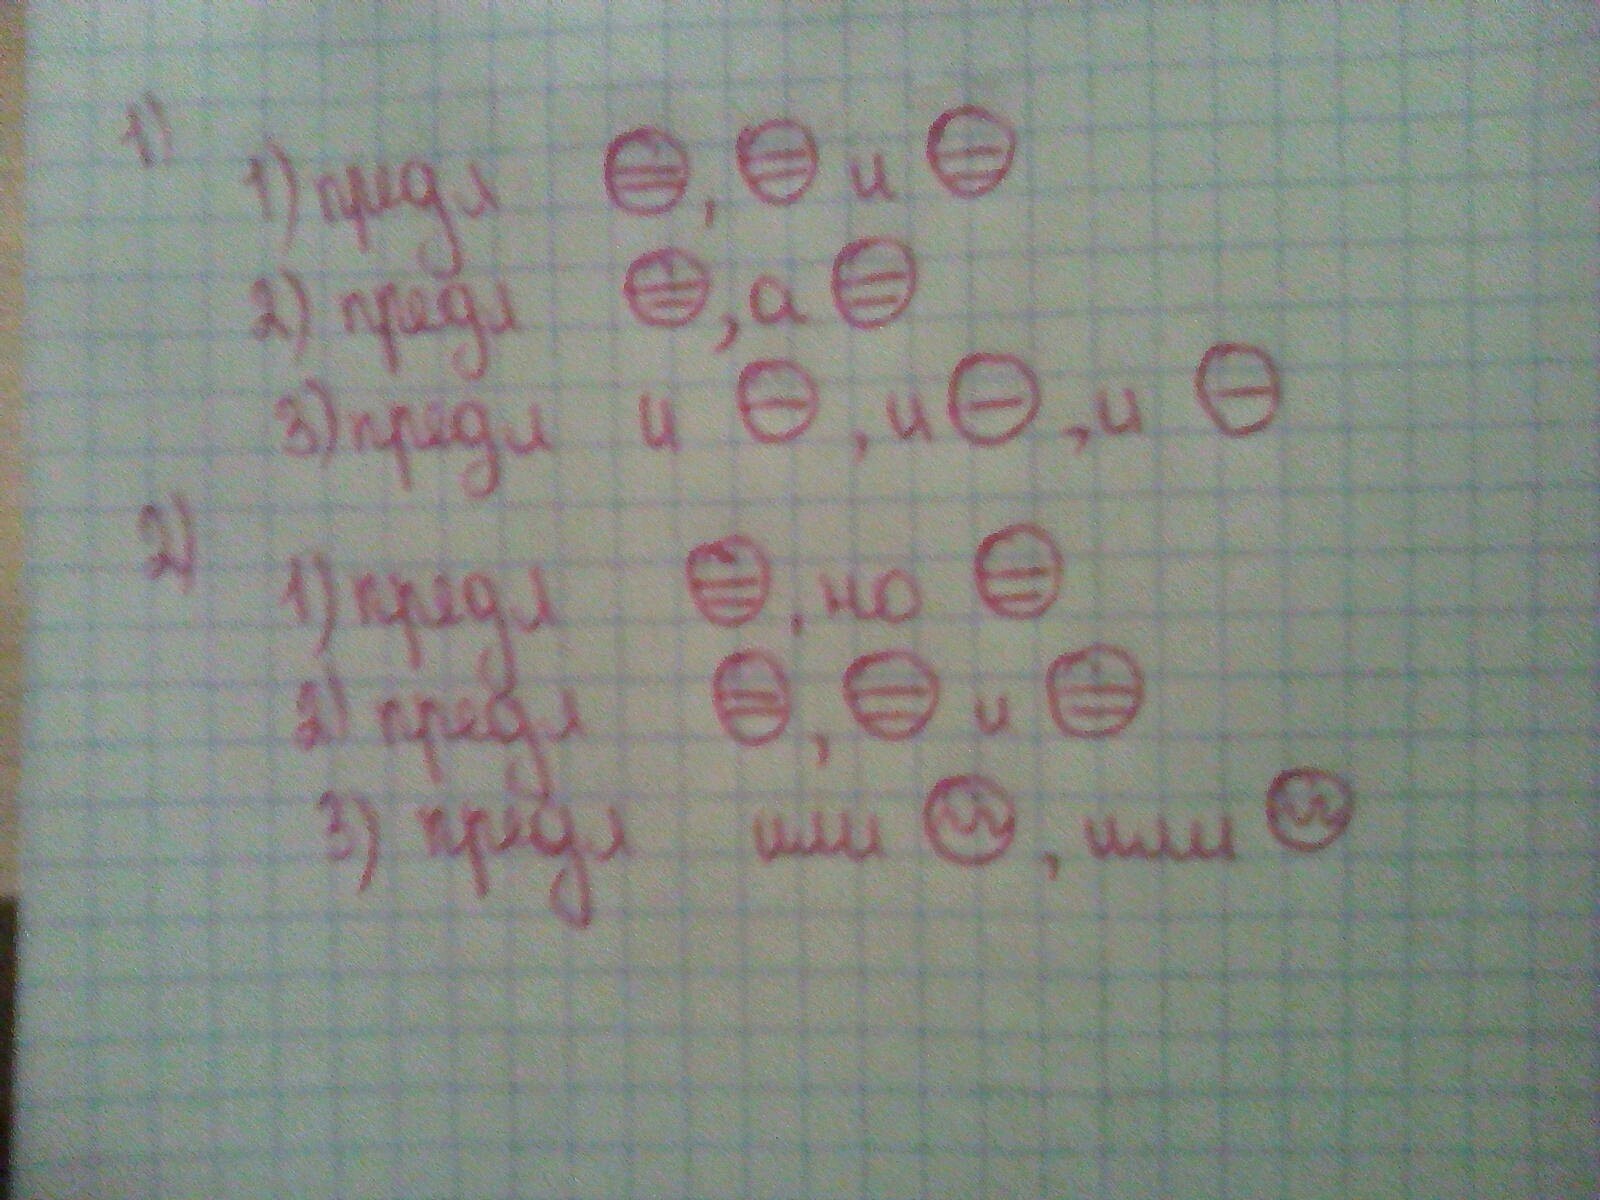 1)
1) предл , и
2) предл , а
3) предл и , и , и
2)
1) предл , но
2) предл , и
3) предл или , или